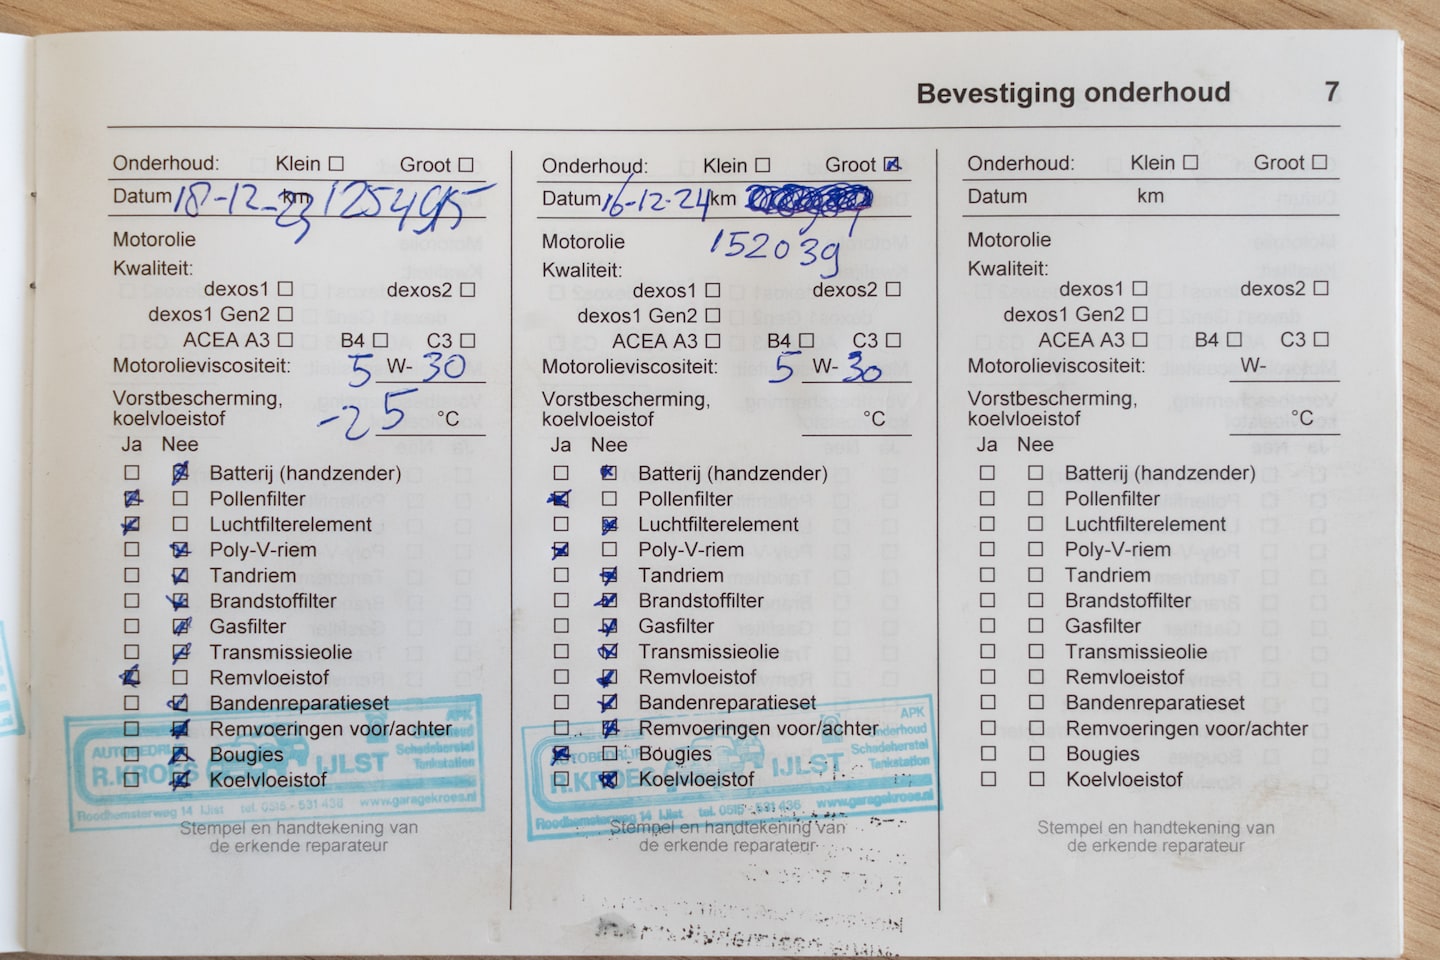 Bevestiging onderhoud 7
Onderhoud: Klein ☐ Groot ☐
Datum 18-12-23 km 125495
Motorolie
Kwaliteit:
dexos1 ☐ dexos2 ☐
dexos1 Gen2 ☐
ACEA A3 ☐ B4 ☐ C3 ☐
Motorolieviscositeit: 5 W- 30
Vorstbescherming,
koelvloeistof -25 °C
Ja Nee
☐ ☒ Batterij (handzender)
☒ ☐ Pollenfilter
☒ ☐ Luchtfilterelement
☐ ☒ Poly-V-riem
☐ ☒ Tandriem
☐ ☒ Brandstoffilter
☐ ☒ Gasfilter
☐ ☒ Transmissieolie
☒ ☐ Remvloeistof
☐ ☒ Bandenreparatieset
☐ ☒ Remvoeringen voor/achter
☐ ☒ Bougies
☐ ☒ Koelvloeistof
AUTOBEDRIJF
R.KROES IJLST
APK
Onderhoud
Schadeherstel
Tankstation
Roodhemsterweg 14 IJlst tel. 0515 - 531 436 www.garagekroes.nl
Stempel en handtekening van
de erkende reparateur
Onderhoud: Klein ☐ Groot ☒
Datum 16-12-24 km
152039
Motorolie
Kwaliteit:
dexos1 ☐ dexos2 ☐
dexos1 Gen2 ☐
ACEA A3 ☐ B4 ☐ C3 ☐
Motorolieviscositeit: 5 W- 30
Vorstbescherming,
koelvloeistof °C
Ja Nee
☐ ☒ Batterij (handzender)
☒ ☐ Pollenfilter
☐ ☒ Luchtfilterelement
☒ ☐ Poly-V-riem
☐ ☒ Tandriem
☐ ☒ Brandstoffilter
☐ ☒ Gasfilter
☐ ☒ Transmissieolie
☐ ☒ Remvloeistof
☐ ☒ Bandenreparatieset
☐ ☒ Remvoeringen voor/achter
☒ ☐ Bougies
☐ ☒ Koelvloeistof
AUTOBEDRIJF
R.KROES IJLST
APK
Onderhoud
Schadeherstel
Tankstation
Roodhemsterweg 14 IJlst tel. 0515 - 531 436 www.garagekroes.nl
Stempel en handtekening van
de erkende reparateur
Onderhoud: Klein ☐ Groot ☐
Datum km
Motorolie
Kwaliteit:
dexos1 ☐ dexos2 ☐
dexos1 Gen2 ☐
ACEA A3 ☐ B4 ☐ C3 ☐
Motorolieviscositeit: W-
Vorstbescherming,
koelvloeistof °C
Ja Nee
☐ ☐ Batterij (handzender)
☐ ☐ Pollenfilter
☐ ☐ Luchtfilterelement
☐ ☐ Poly-V-riem
☐ ☐ Tandriem
☐ ☐ Brandstoffilter
☐ ☐ Gasfilter
☐ ☐ Transmissieolie
☐ ☐ Remvloeistof
☐ ☐ Bandenreparatieset
☐ ☐ Remvoeringen voor/achter
☐ ☐ Bougies
☐ ☐ Koelvloeistof
Stempel en handtekening van
de erkende reparateur